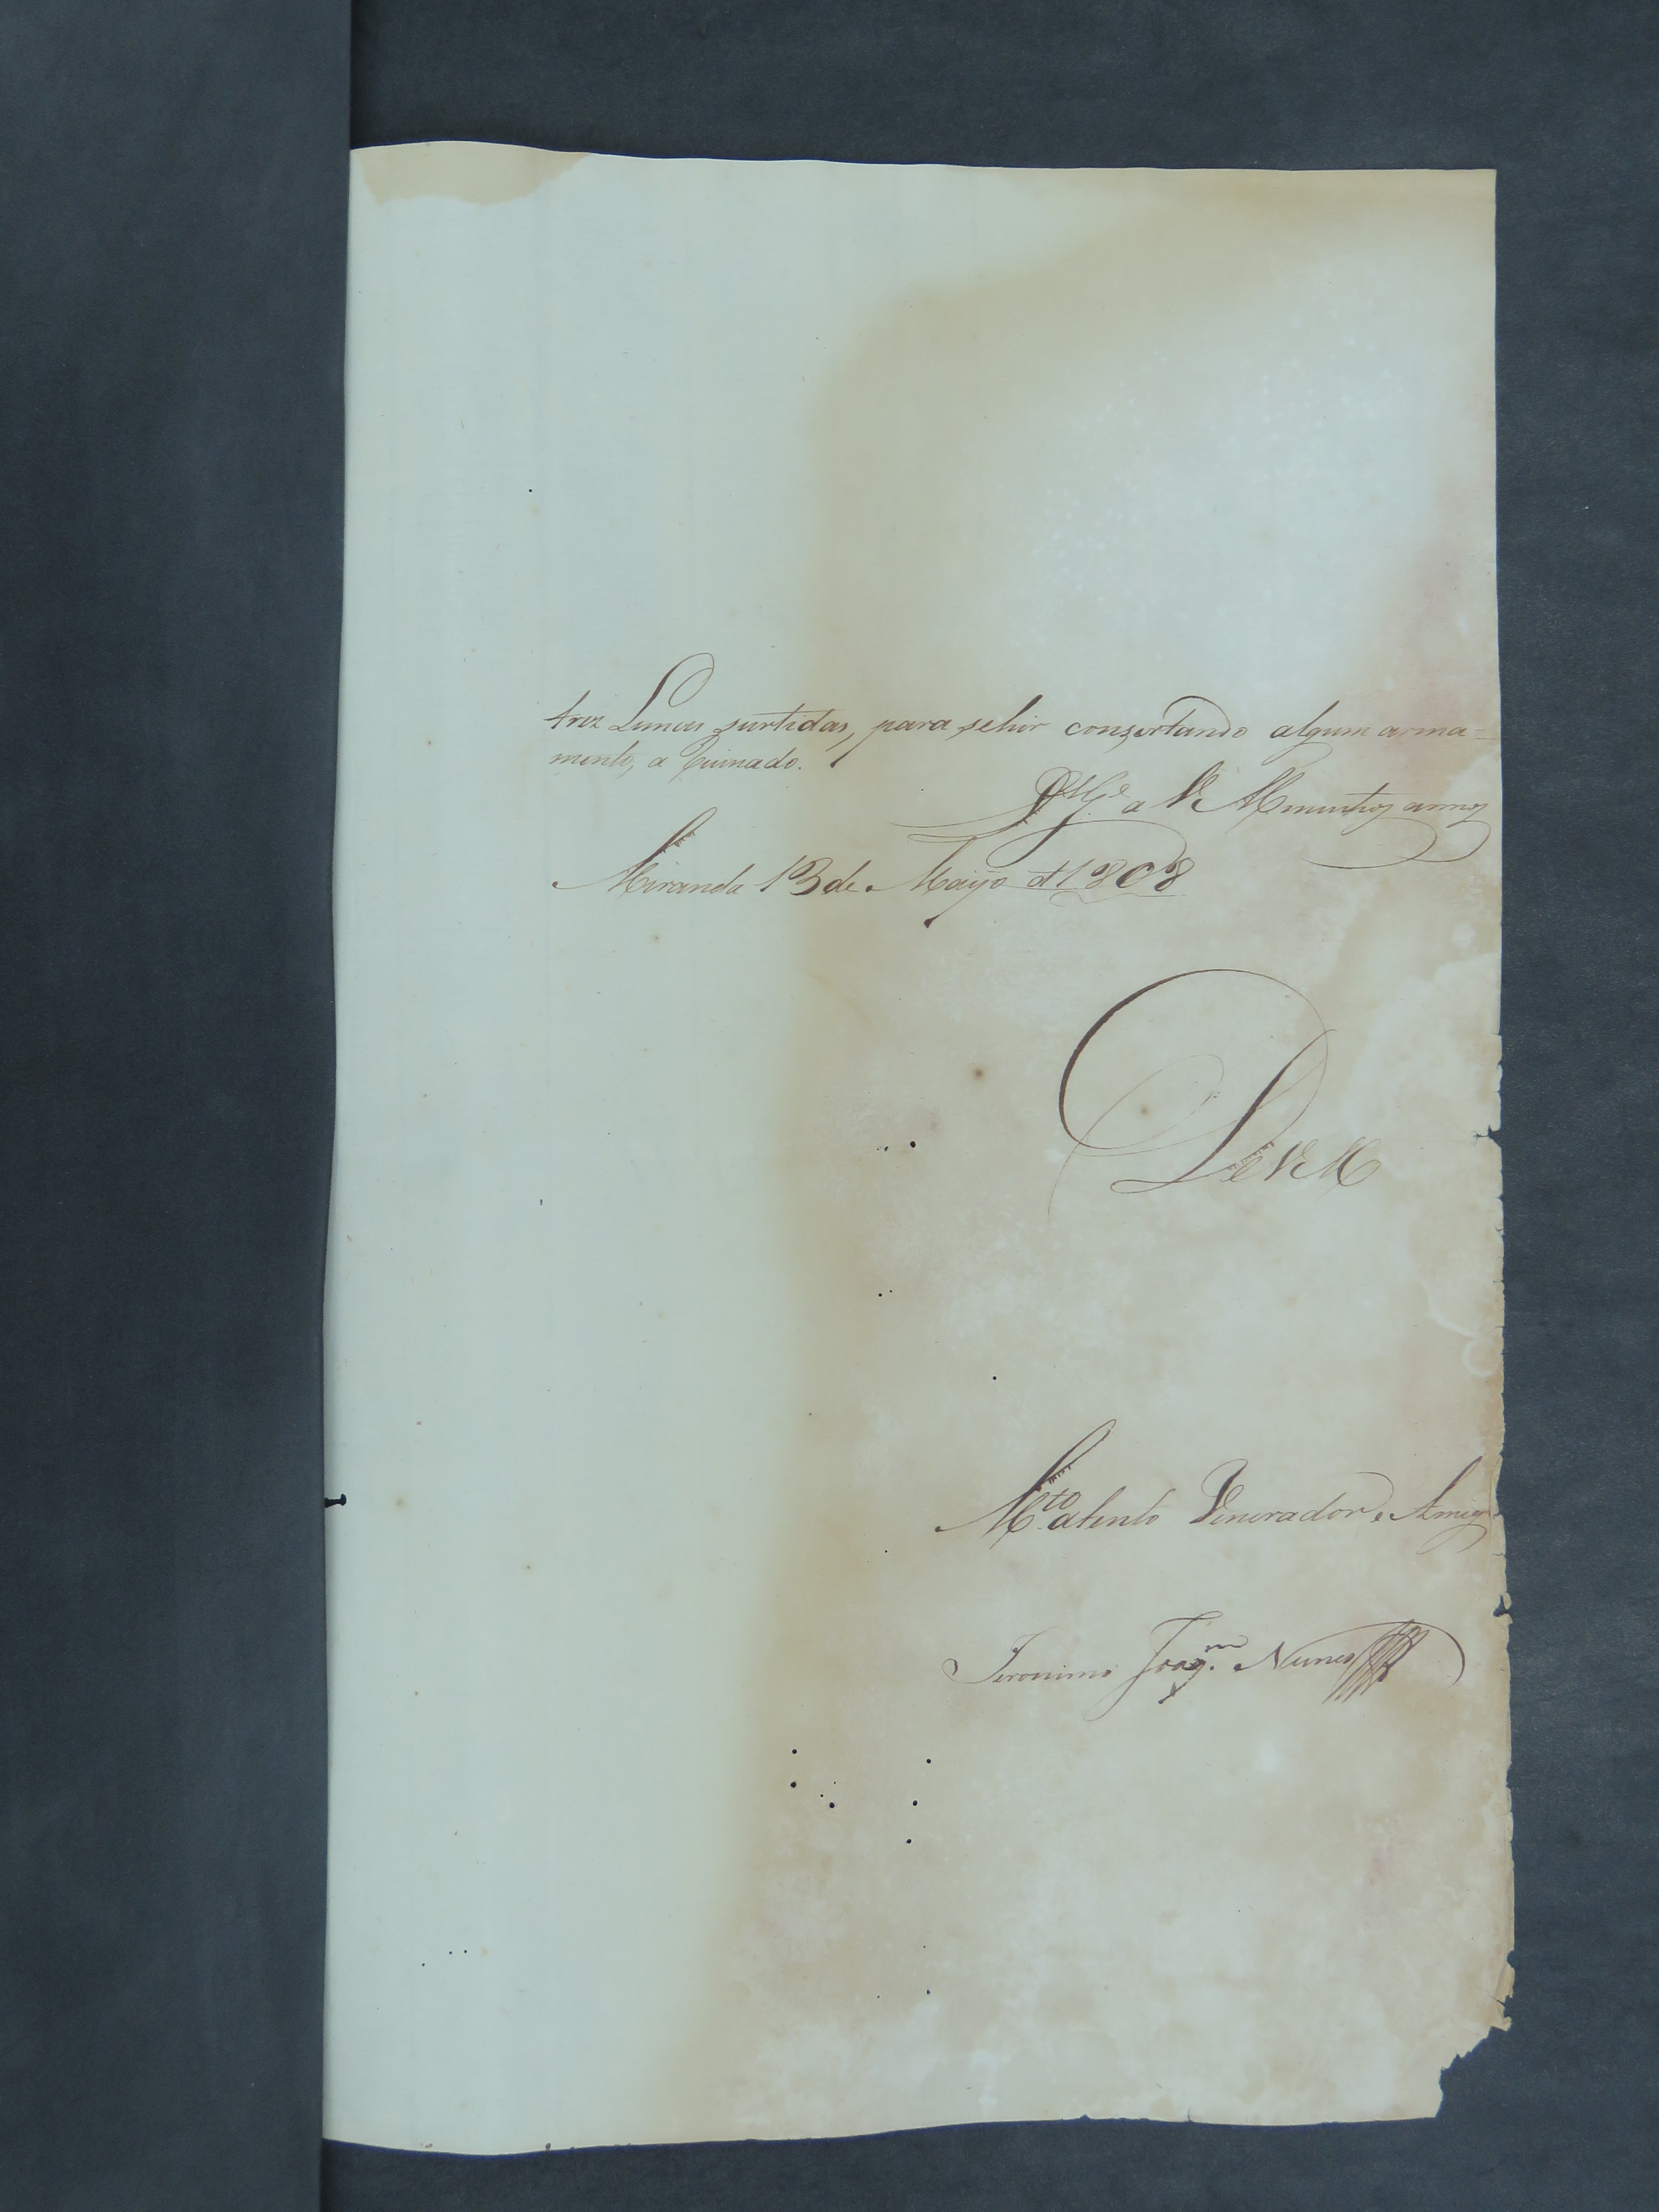 trez Limas surtidas, para sehir consertando algum arma=
mento, aRuinado.
Ds. Ge. a V. M muntos annos
Miranda 13 de Mayo d 1808
De V. M
Mto atento Venerador e Amigo
Jeronimo Joaqm. Nunes